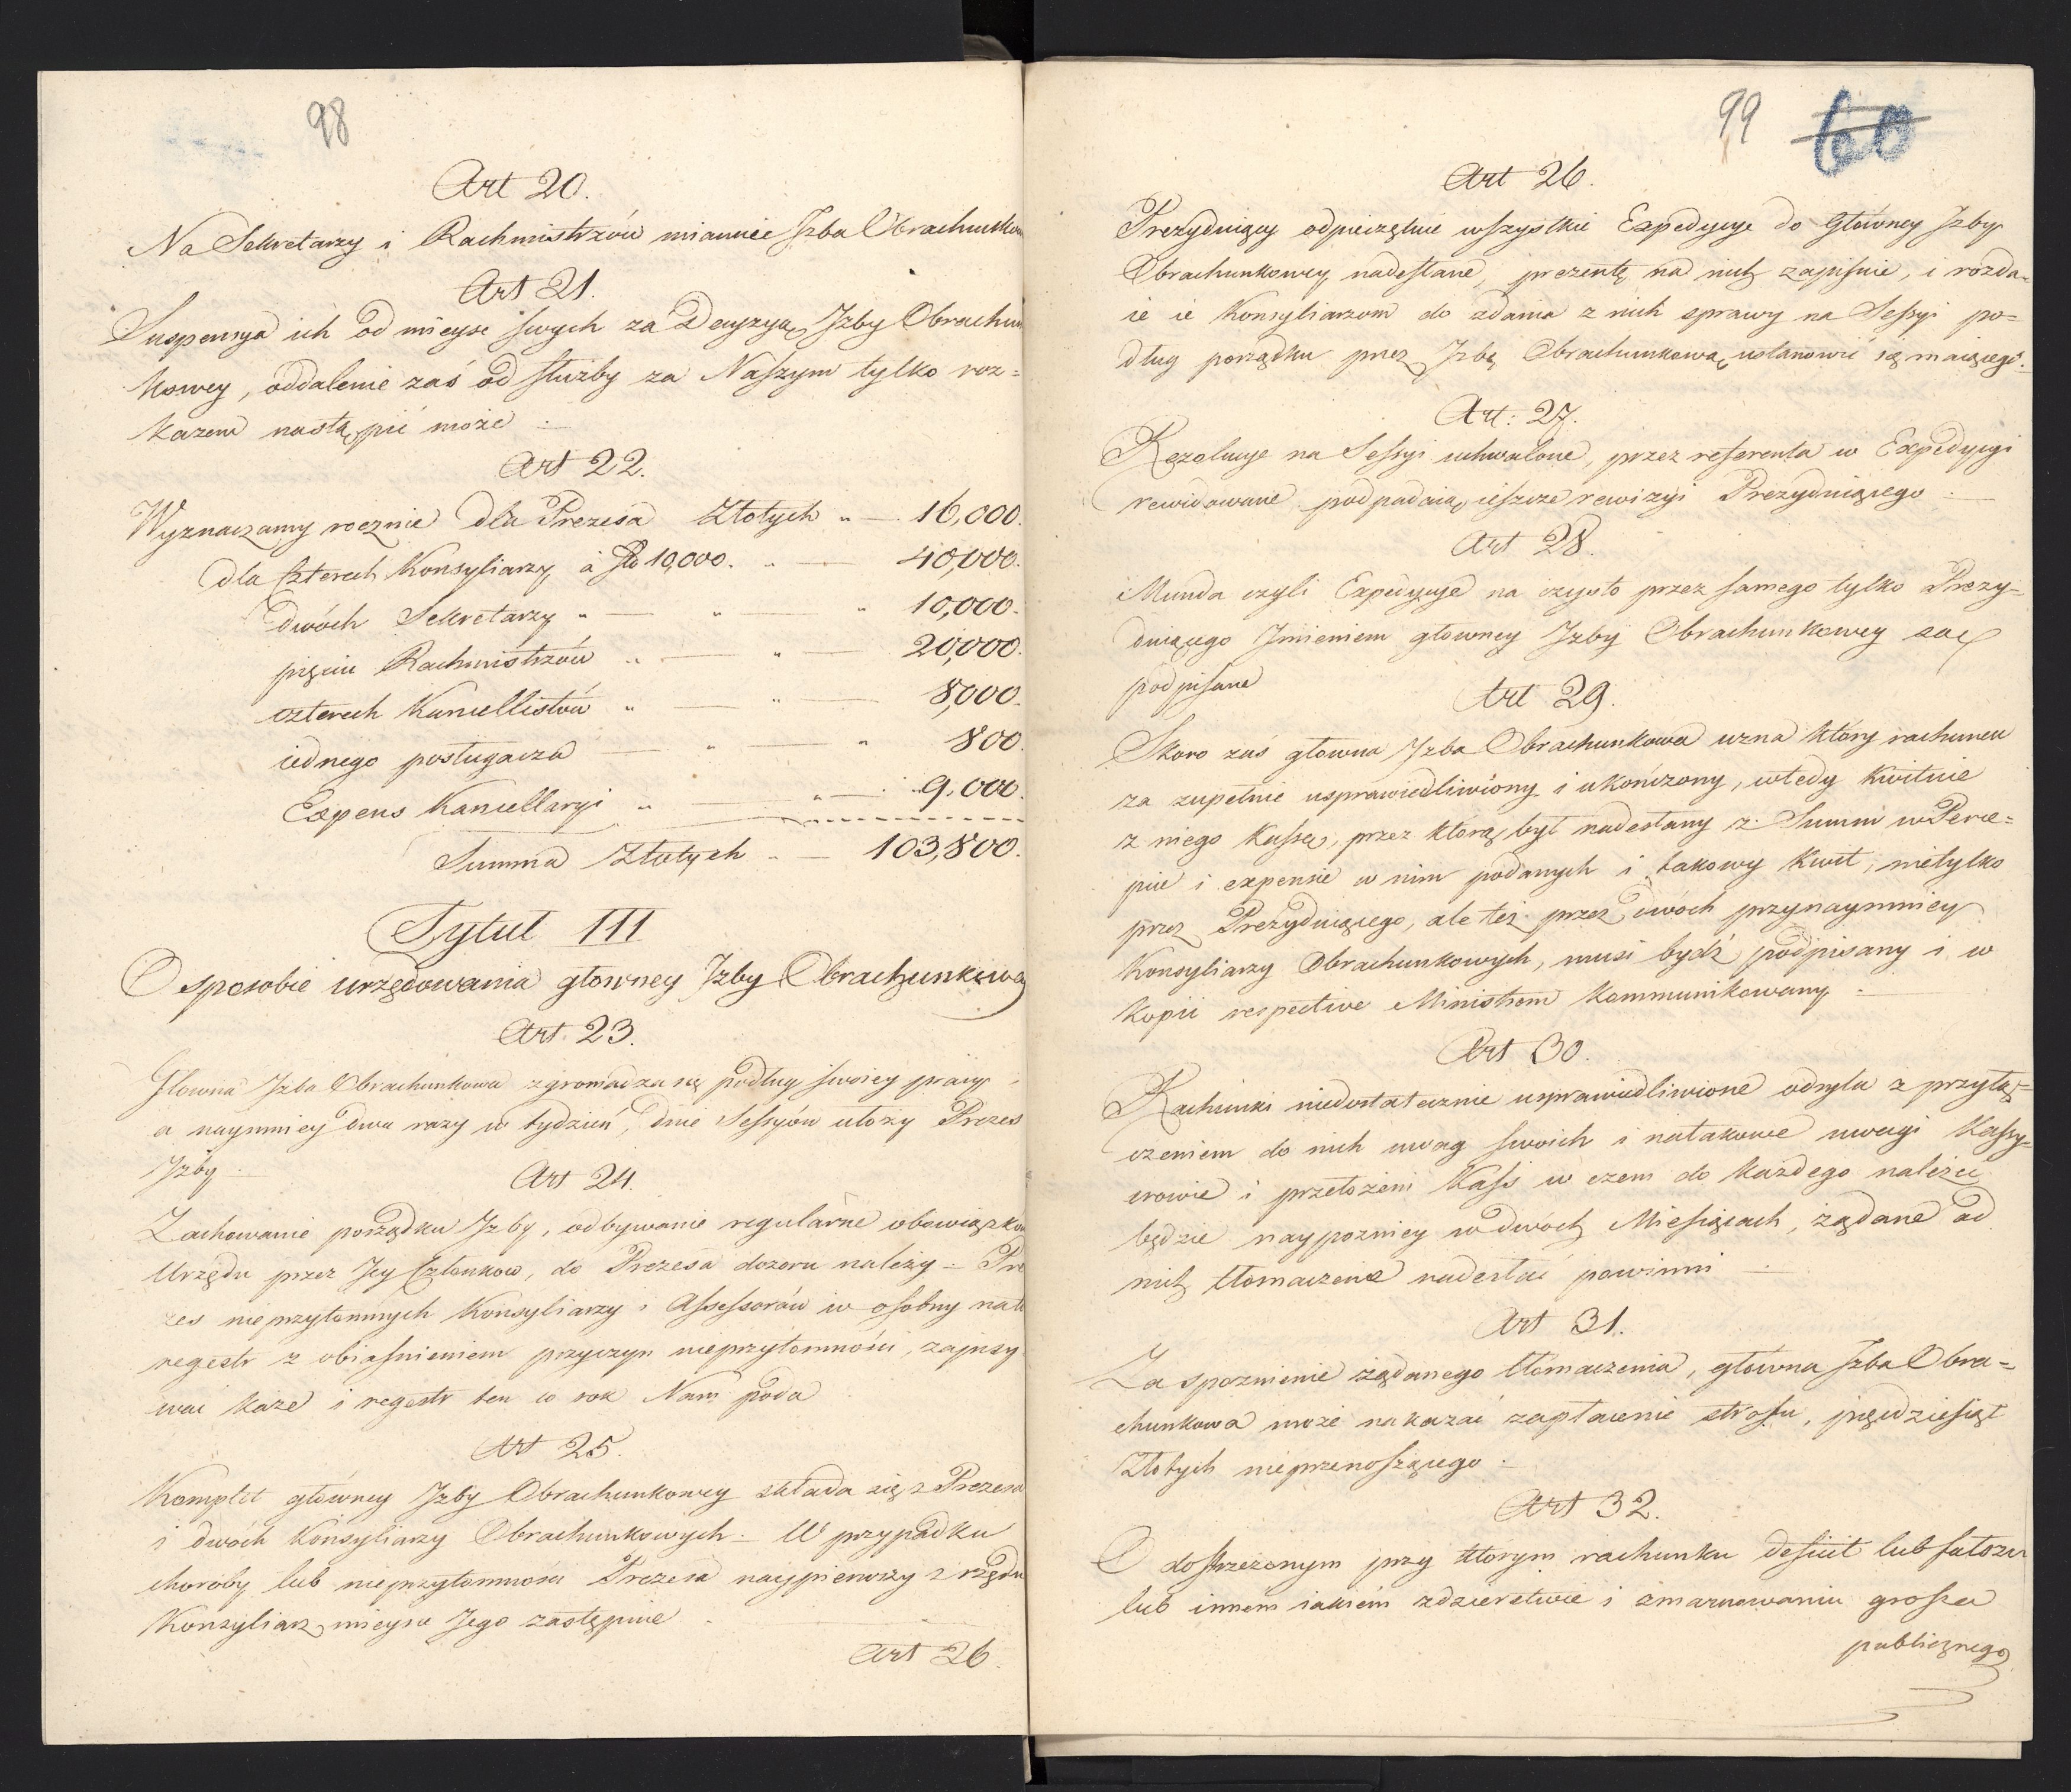 98
Art 20.
Na Sekretarzy i Rachmistrzów mianuie Izba Obrachunkow
Art 21.
Suspensya ich od mieysc swych za Decyzyą Izby Obrachun
kowey, oddalenie zaś od służby za Naszym tylko roz=
kazem nastąpić może
Art 22.
Wyznaczamy rocznie dla Prezesa Złotych „ — 16,000.
dla Czterech Konsyliarzy à fl 10,000. „ — 40,000.
dwóch Sekretarzy „ — „ — „ 10,000.
pięciu Rachmistrzów „ — „ — 20,000.
czterech Kancellistów „ — „ — 8,000.
iednego posługacza — „ — „ 800.
Expens Kancellaryi „ — „ — 9,000.
Summa Złotych „ — 103,800.
Tytuł III
O sposobie urzędowania głowney Izby Obrachunkowey
Art. 23.
Głowna Izba Obrachunkowa zgromadza się podług swoiey pracy,
a naymniey dwa razy w tydzień, dnie Sessyów ułoży Prezes
Izby.
Art 24.
Zachowanie porządku Izby, odbywanie regularne obowiązków
Urzędu przez Jey Członkow, do Prezesa dozoru należy – Pre
zes nieprzytomnych Konsyliarzy i Assessorów w osobny na to
regestr z obiaśnieniem przyczyn nieprzytomności, zapisy
wać każe i regestr ten co rok Nam poda
Art 25.
Komplet główney Izby Obrachunkowey składa się z Prezesa
i dwóch Konsyliarzy Obrachunkowych – W przypadku
choroby lub nieprzytomności Prezesa naypierwszy z rzędu
Konsyliarz mieysce Jego zastępuie
Art 26.
99 60
Art 26.
Prezyduiący odpieczętuie wszystkie Expedycye do Główney Izby
Obrachunkowey nadesłane, prezentę na nich zapisuie, i rozda=
ie ie Konsyliarzom do zdania z nich sprawy na Sessyi po=
dług porządku przez Izbę Obrachunkową ustanowić się maiącego.
Art: 27.
Rezolucye na Sessyi uchwalone, przez referenta w Expedycyi
rewidowane podpadaią ieszcze rewizyi Prezyduiącego
Art 28.
Munda czyli Expedycye na czysto przez samego tylko Prezy=
duiącego Imieniem głowney Izby Obrachunkowey są
podpisane
Art 29.
Skoro zaś głowna Izba Obrachunkowa uzna który rachunek
za zupełnie usprawiedliwiony i ukończony, wtedy kwituie
z niego Kassę, przez którą był nadesłany z Summ w Perce=
pcie i expensie w nim podanych i takowy kwit, nietylko
przez Prezyduiącego, ale też przez dwóch przynaymniey
Konsyliarzy Obrachunkowych, musi bydź podpisany i w
kopii respective Ministrom kommunikowany
Art 30.
Rachunki niedostatecznie usprawiedliwione odsyła z przyłą=
czeniem do nich uwag swoich i na takowe uwagi Kassy=
erowie i przełożeni Kass w czem do każdego należeć
będzie naypozniey w dwóch Miesiącach, żądane od
nich tłomaczenie nadesłać powinni
Art 31.
Za spoznienie żądanego tłomaczenia, głowna Izba Obra=
chunkowa może nakazać zapłacenie strofu, pięćdziesiąt
Złotych nieprzenoszącego.
Art 32.
O dostrzeżonym przy którym rachunku deficit lub fałszu
lub innem iakiém zdzierstwie i zmarnowaniu grosza
publicznego